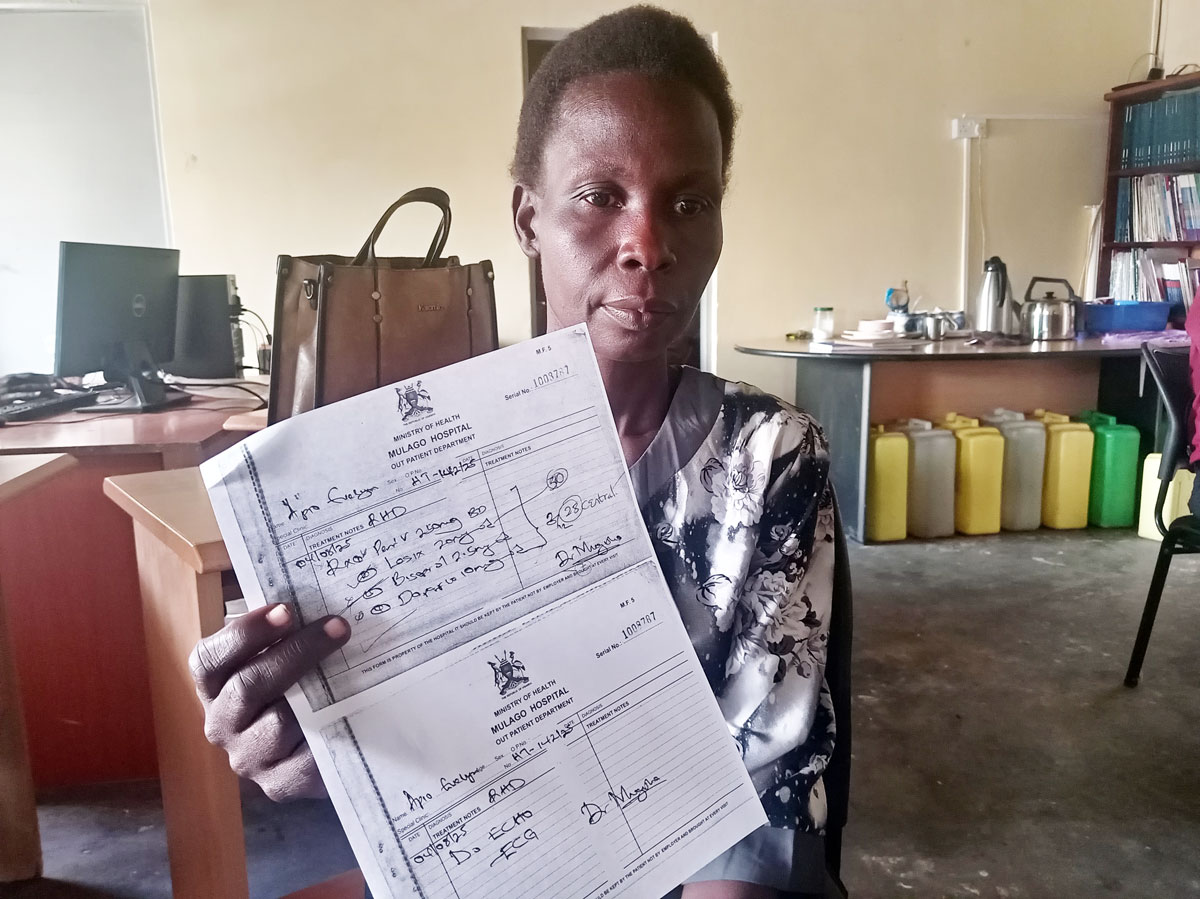 M.F. 5
Serial No. 1003787
THE REPUBLIC OF UGANDA
MINISTRY OF HEALTH
MULAGO HOSPITAL
OUT PATIENT DEPARTMENT
Name Apio Evelyn Sex O.P.No. HT-142/25
Special Clinic No DATE
DATE DIAGNOSIS TREATMENT NOTES RHD
DIAGNOSIS TREATMENT NOTES
04/08/25
Pen V 250mg BD
Losix 20mg
2.5mg
10mg
30
Central
Dr Mugisha
THIS FORM IS PROPERTY OF THE HOSPITAL IT SHOULD BE KEPT BY THE PATIENT NOT BY EMPLOYER AND BROUGHT AT EVERY VISIT
M.F. 5
Serial No.: 1003787
THE REPUBLIC OF UGANDA
MINISTRY OF HEALTH
MULAGO HOSPITAL
OUT PATIENT DEPARTMENT
Name Apio Evelyn Age Sex O.P.No. HT-142/25
Special Clinic No DATE
DATE DIAGNOSIS TREATMENT NOTES RHD
DIAGNOSIS TREATMENT NOTES
04/08/25
Do ECHO
ECG
Dr Mugisha
SHOULD BE KEPT BY THE PATIENT NOT BY EMPLOYER AND BROUGHT AT EVERY VISIT
DELL